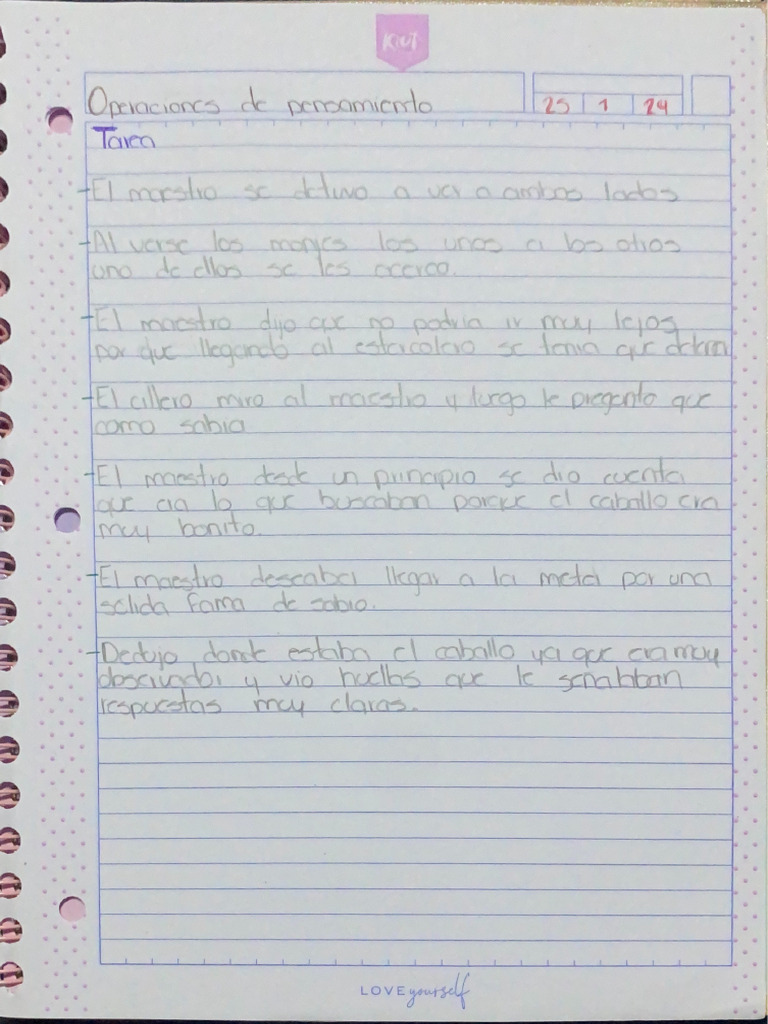 KIUT
Operaciones de pensamiento
25 1 24
Tarea
-El maestro se detuvo a ver a ambos lados
-Al verse los monjes los unos a los otros
uno de ellos se les acerco.
-El maestro dijo que no podria ir muy lejos
por que llegando al estercolero se tenia que
-El cillero miro al maestro y luego le pregunto que
como sabia
-El maestro desde un principio se dio cuenta
que era lo que buscaban porque el caballo era
muy bonito.
-El maestro deseaba llegar a la meta por una
solida fama de sabio.
-Dedujo donde estaba el caballo ya que era muy
observador y vio huellas que le señalaban
respuestas muy claras.
LOVE yourself